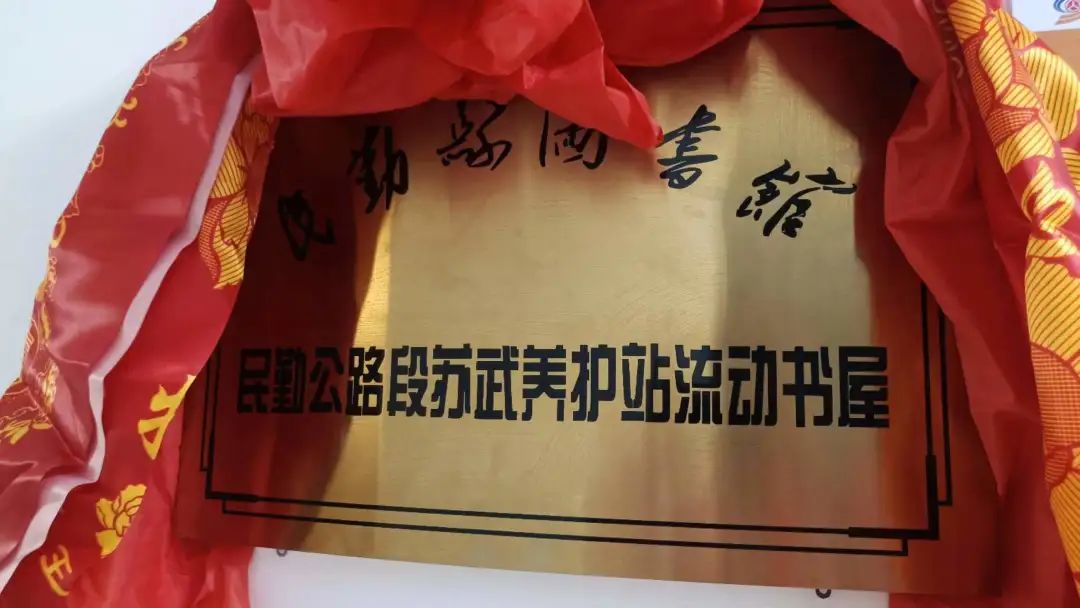 民勤縣圖書館
民勤公路段苏武养护站流动书屋